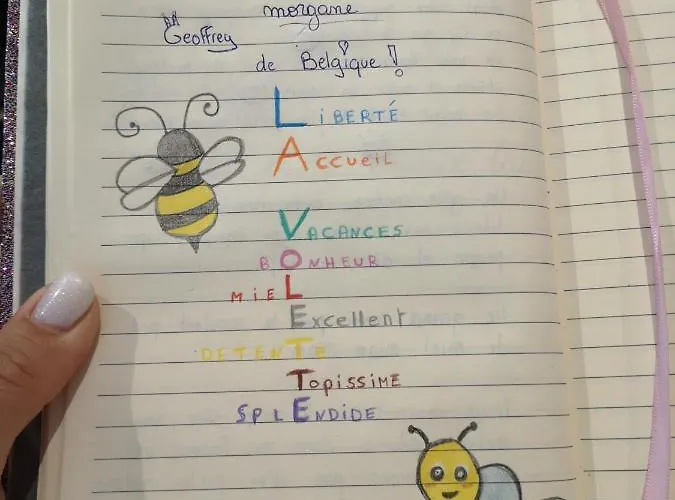 morgane
Geoffrey
de Belgique !
LiBERTÉ
Accueil
VACANCES
BONHEUR
MiEL
Excellent
DETENTE
TopissiME
SPLENDIDE